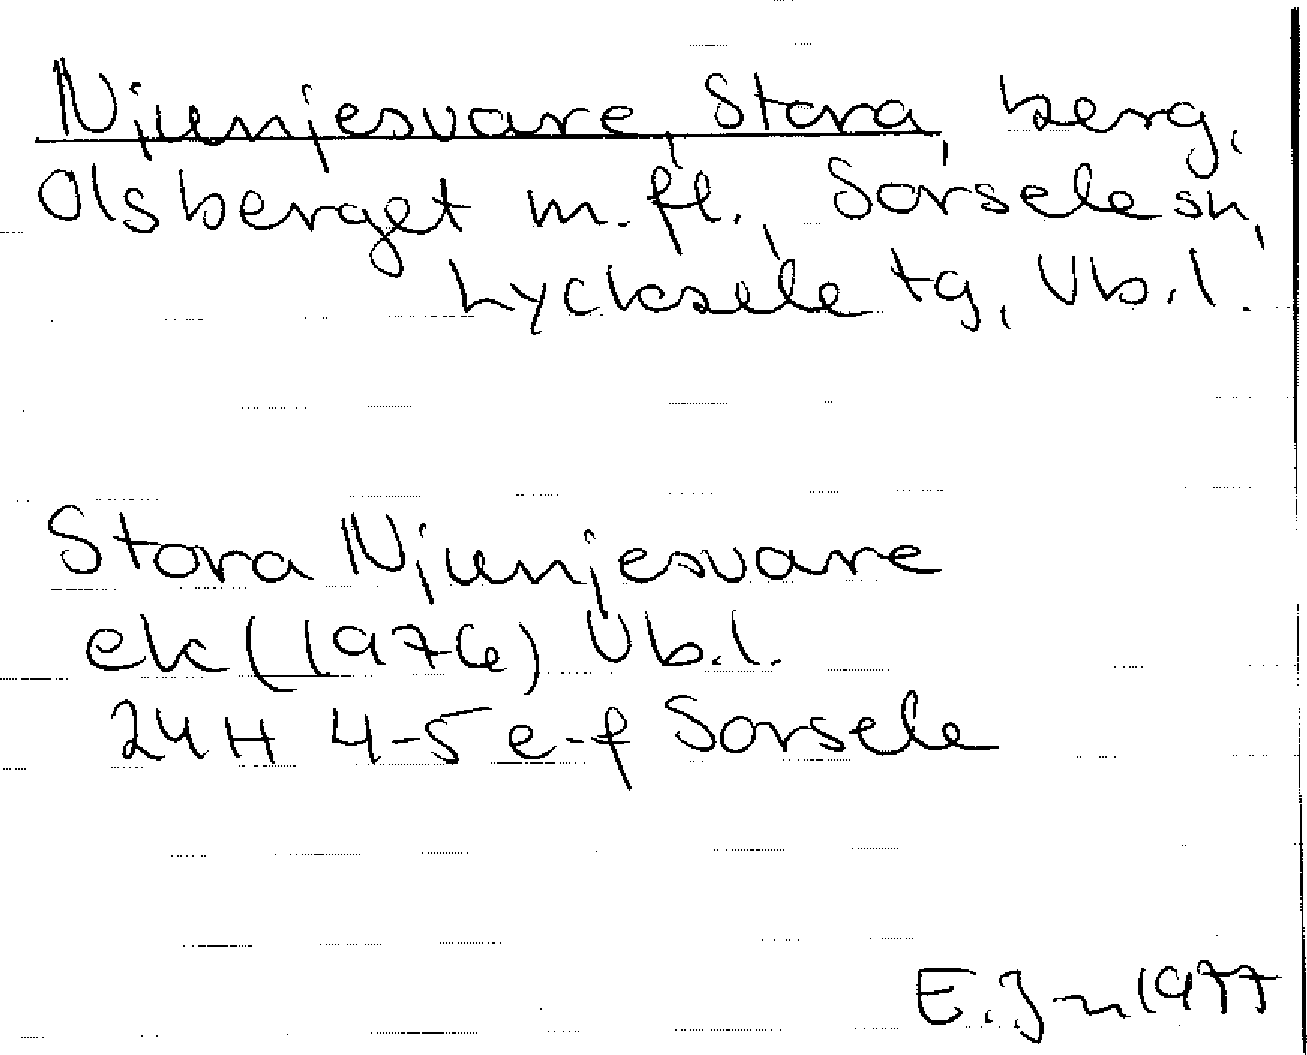 Njunjesvare, Stora, berg,
Olsberget m.fl., Sorsele sn,
Lycksele tg, Vb.l.
Stora Njunjesvare
ek (1976) Vb.l.
24H 4-5 e-f Sorsele
E. J-n 1977